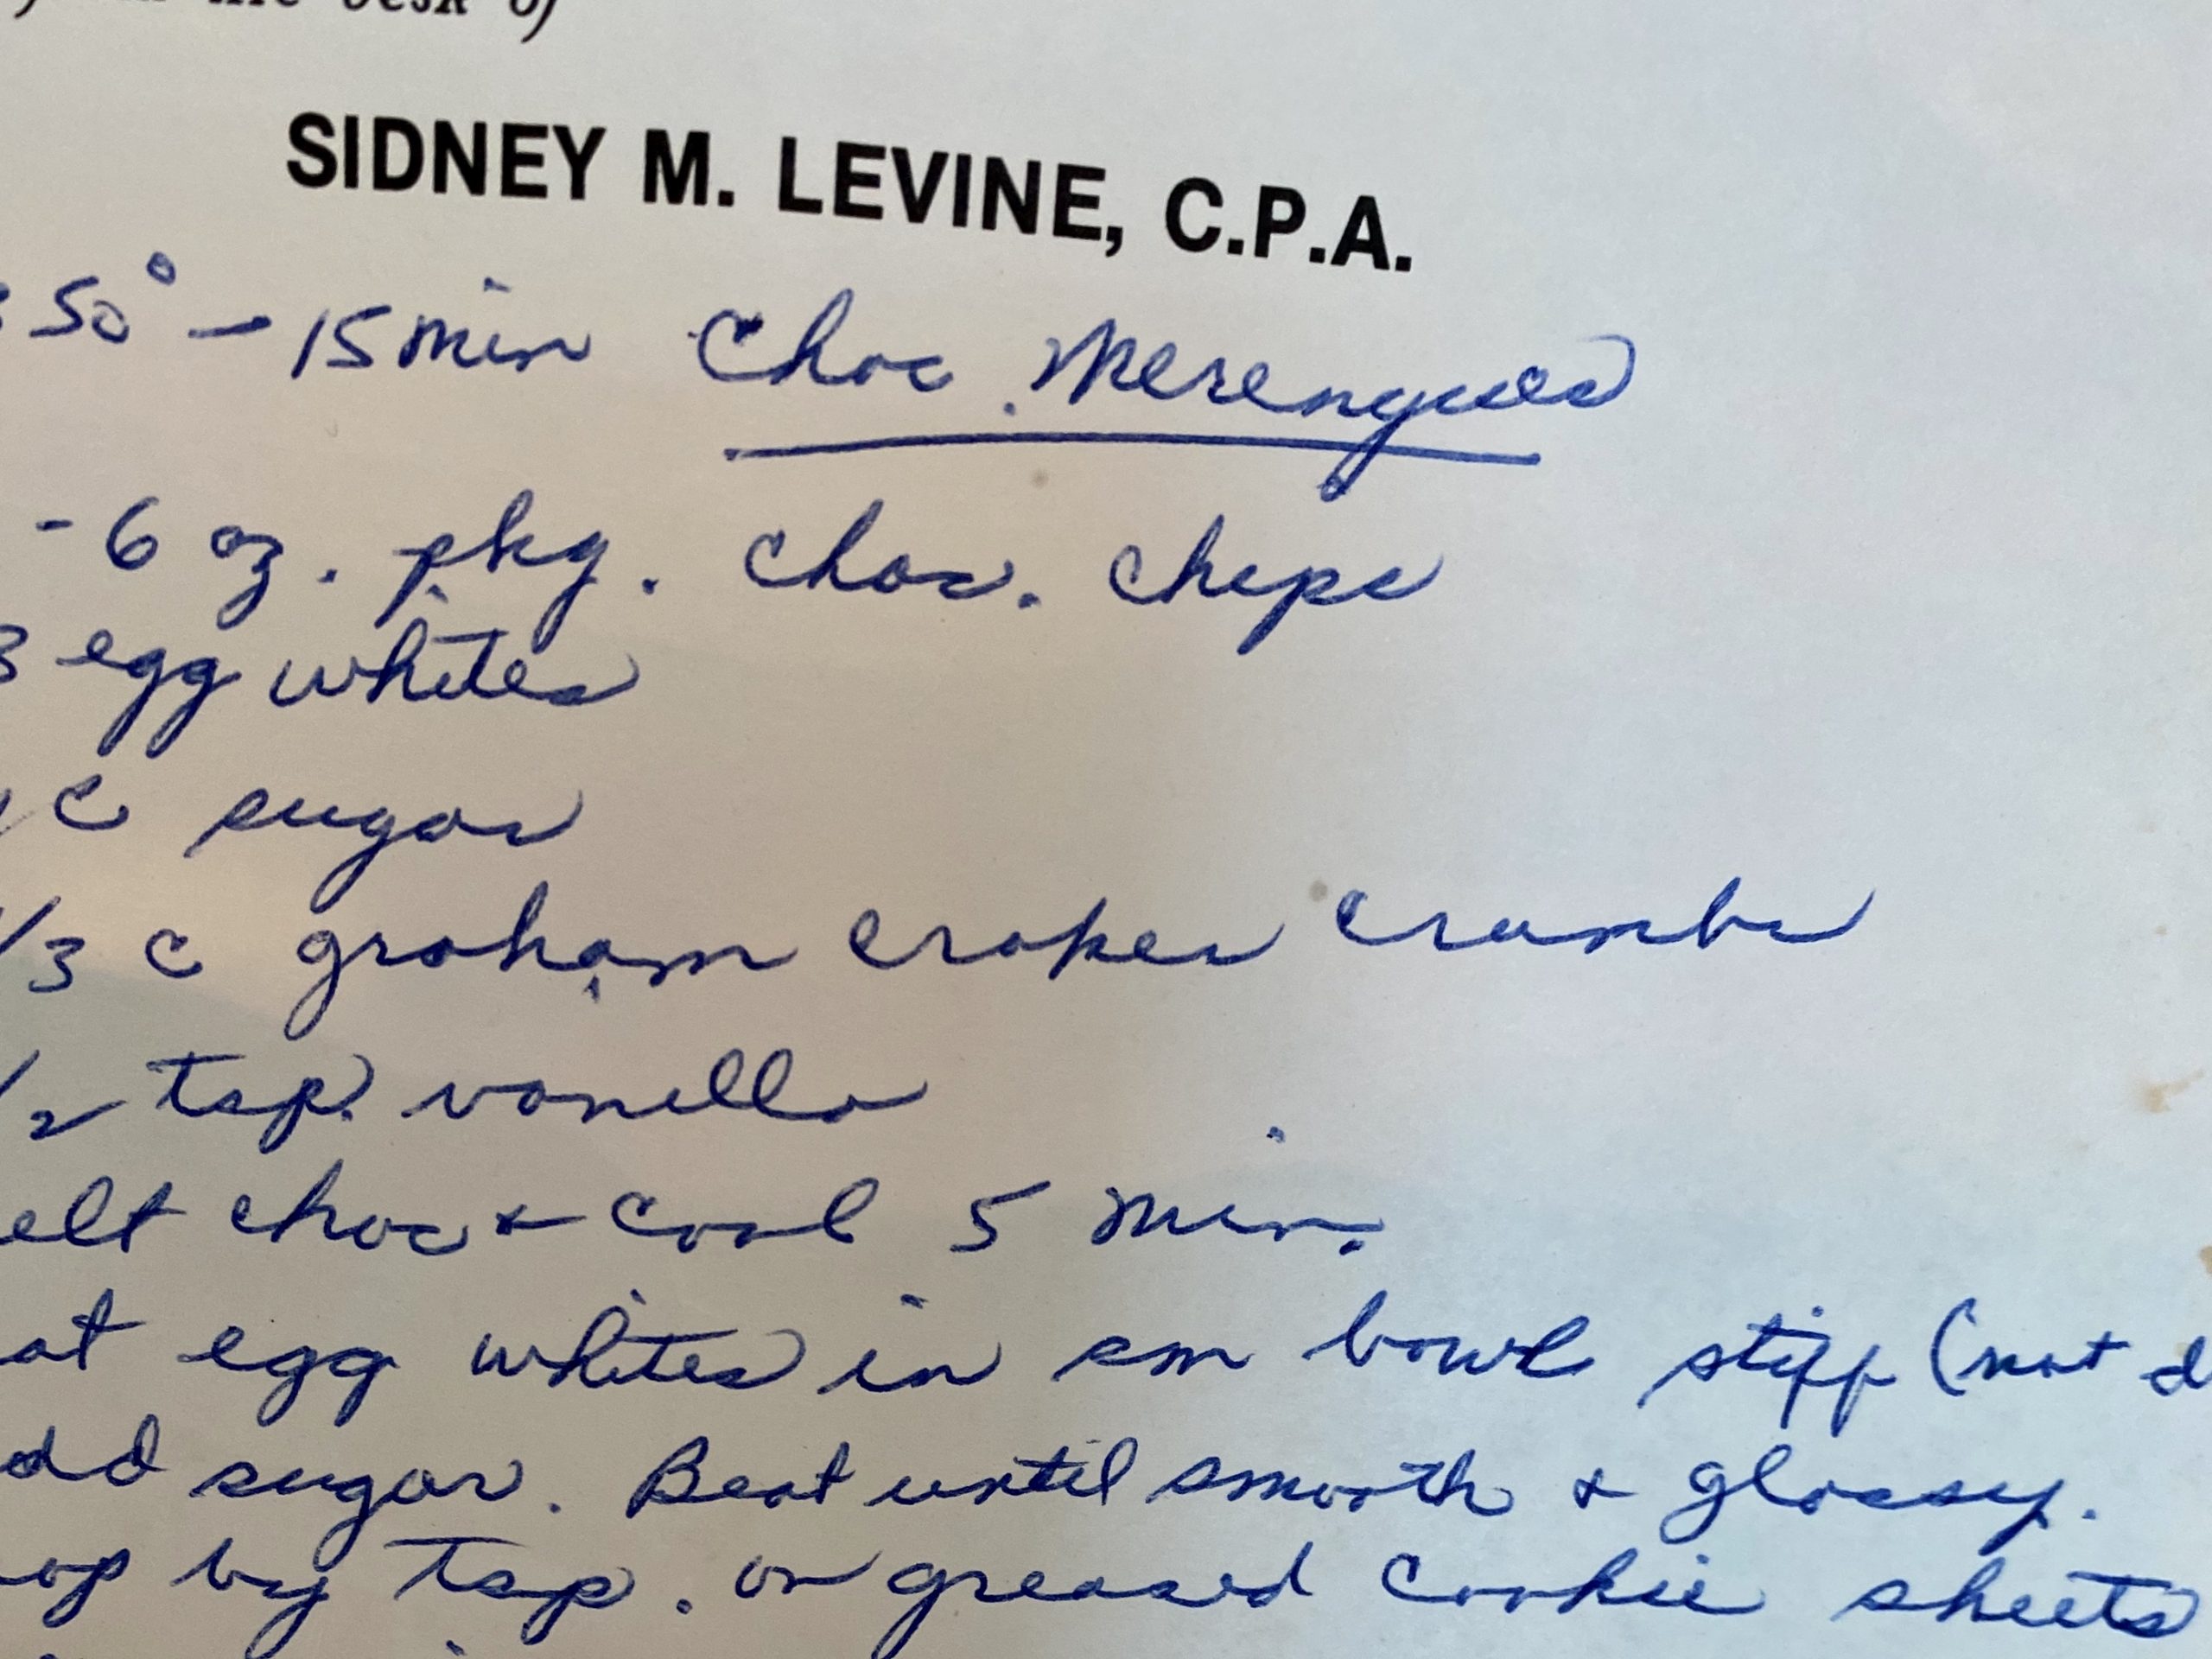 the desk of
SIDNEY M. LEVINE, C.P.A.
350° - 15 min Choc. Merengues
- 6 oz. pkg. choc. chips
3 egg whites
1 C sugar
1/3 c graham craker crumbs
1/2 tsp. vanilla
elt choc & cool 5 min.
at egg whites in sm bowl stiff (not d
dd sugar. Beat until smooth & glossy.
op by tsp. on greased cookie sheets